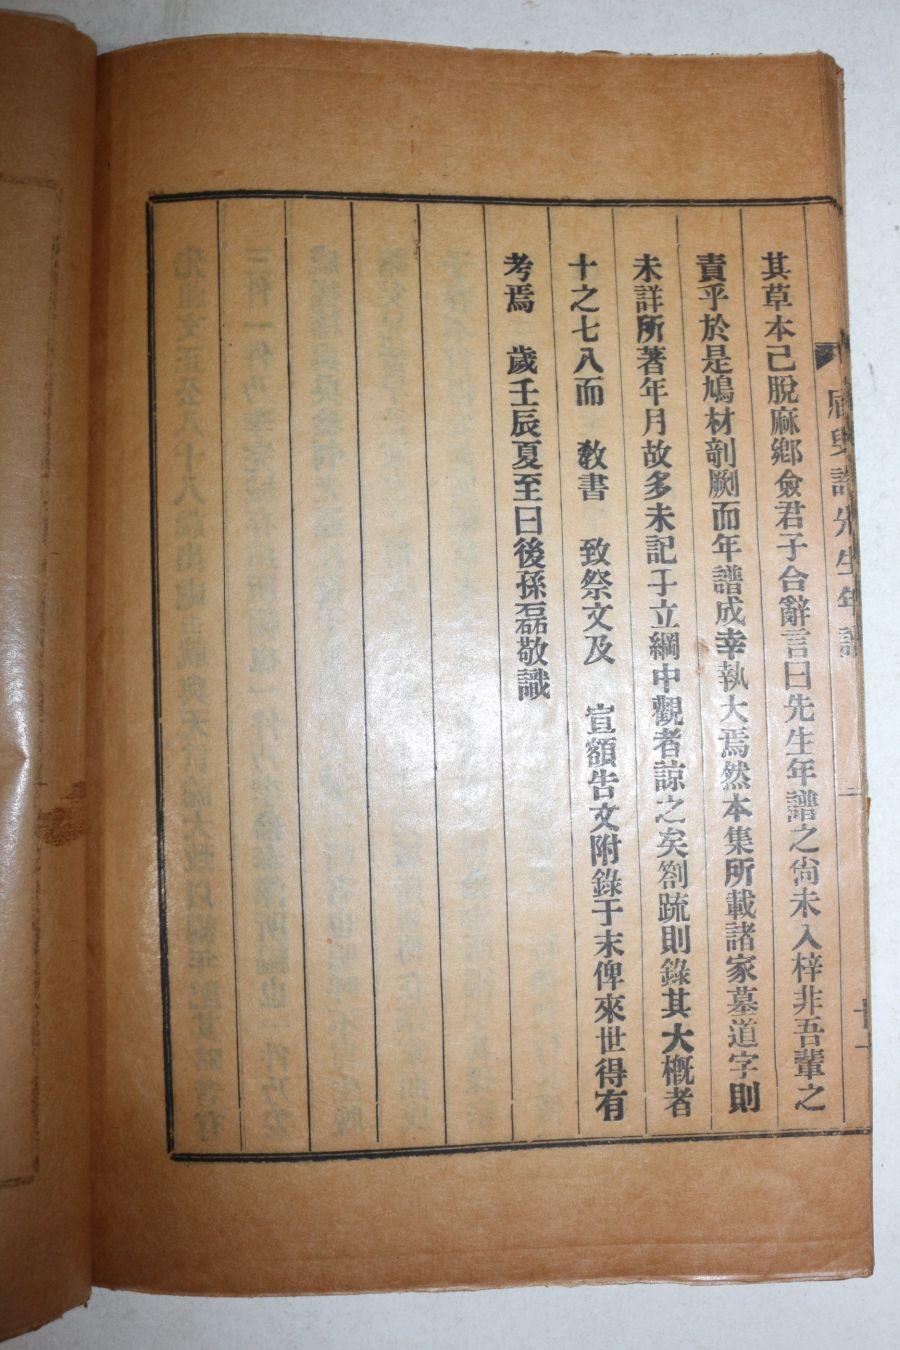 其草本己脫麻鄉僉君子合辭言曰先生年譜之尙未入梓非吾輩之
責乎於是鳩材剞劂而年譜成幸執大焉然本集所載諸家墓道字則
未詳所著年月故多未記于立綱中觀者諒之矣劄疏則錄其大槪者
十之七八而 敎書 致祭文及 宣額告文附錄于末俾來世得有
考焉 歲壬辰夏至日後孫磊敬識
先生年譜